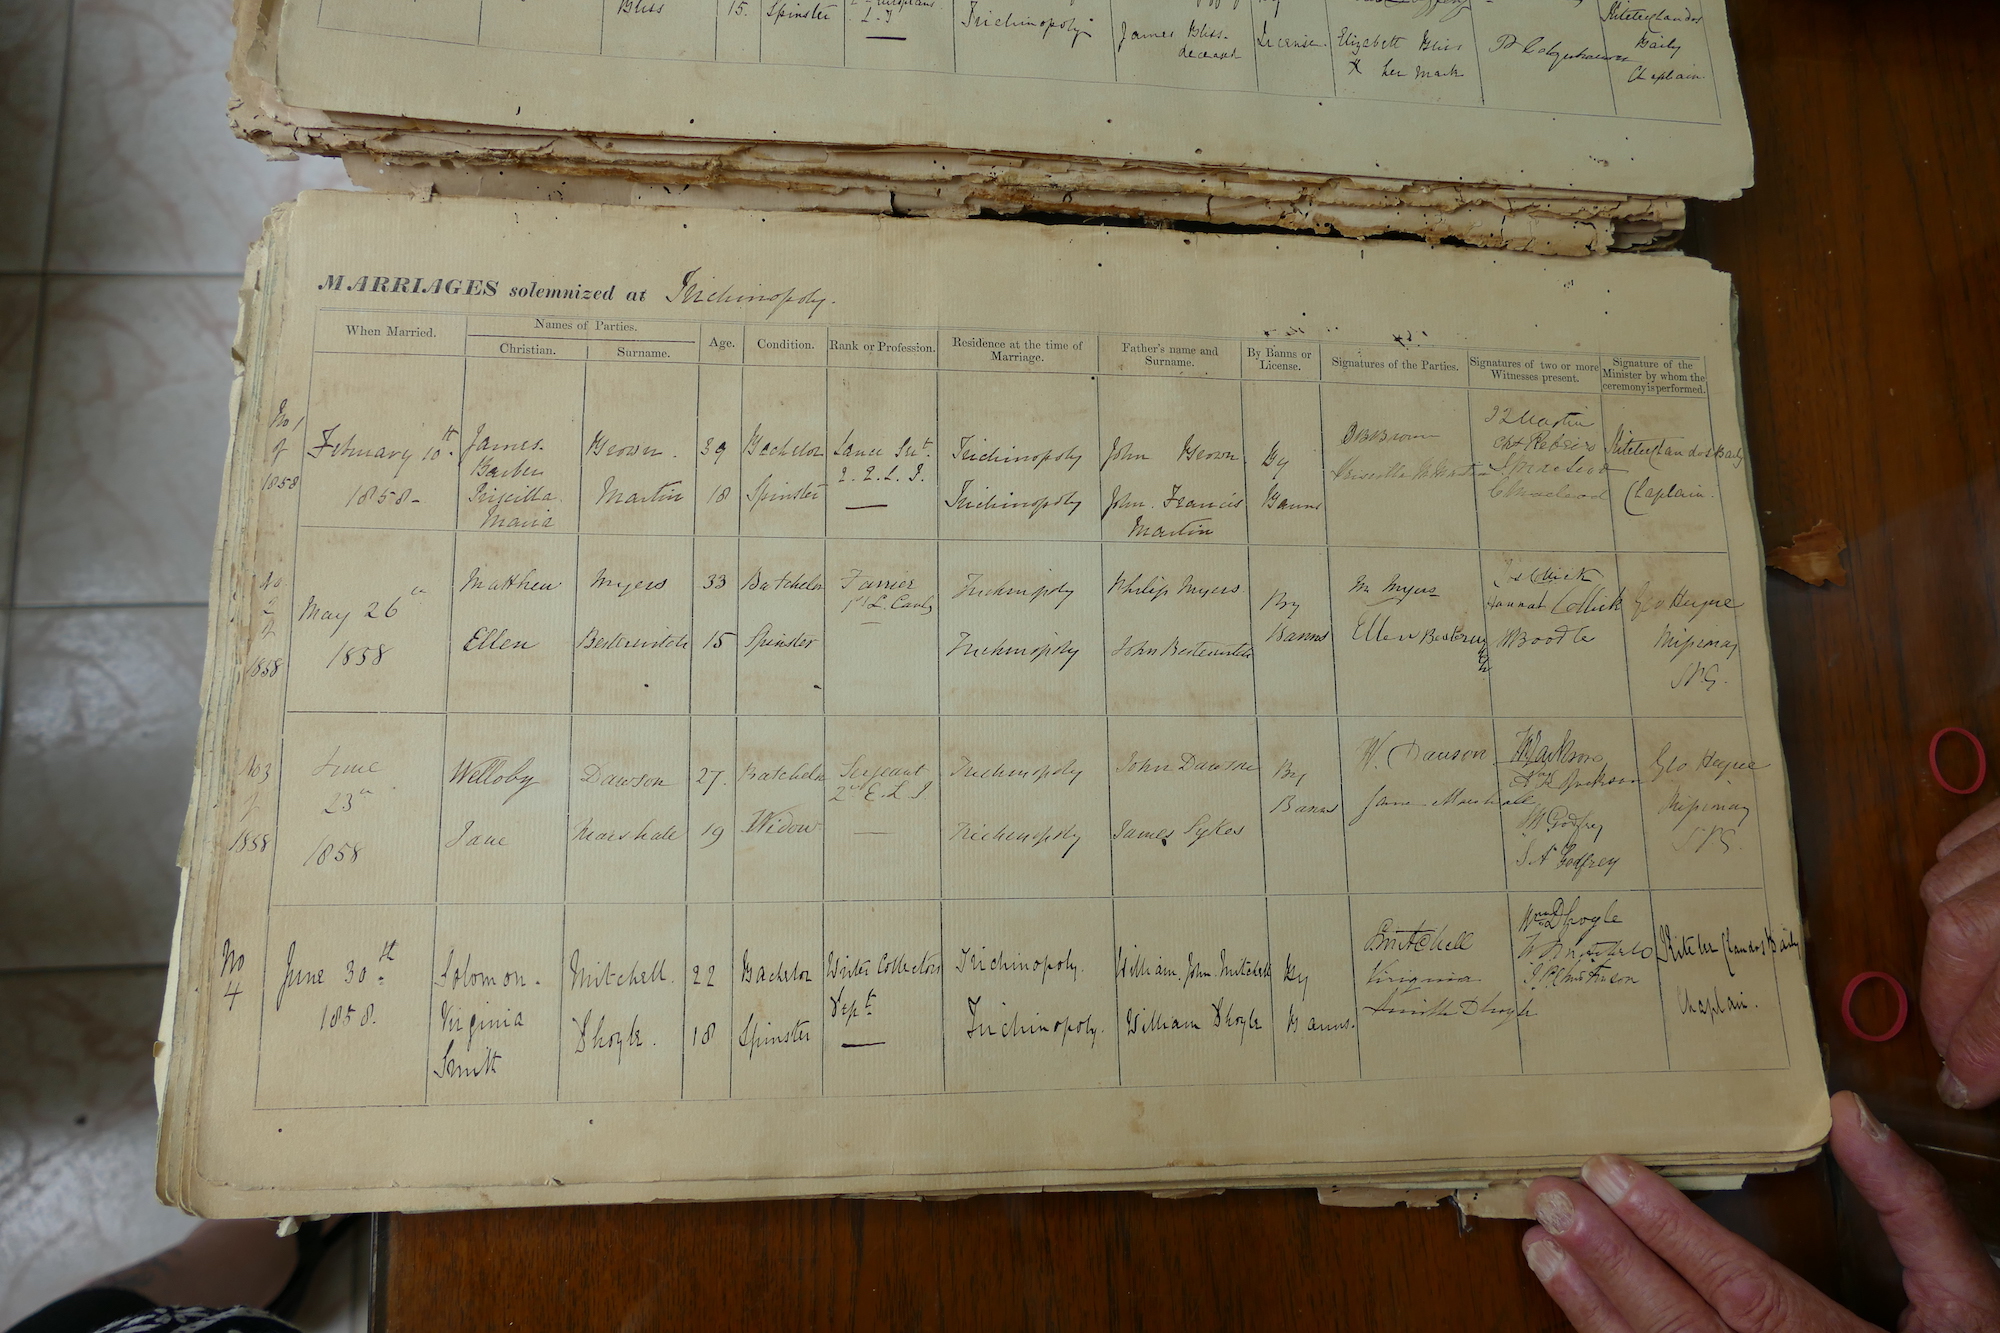 Bliss 15. Spinster L. I Trichinopoly James Bliss License. Elizabeth Bliss
deceased X her mark Baily
Chaplain.
MARRIAGES solemnized at Trichinopoly.
When Married. Names of Parties. Age. Condition. Rank or Profession. Residence at the time of Marriage. Father's name and Surname. By Banns or License. Signatures of the Parties. Signatures of two or more Witnesses present. Signature of the Minister by whom the ceremony is performed.
Christian. Surname.
No 1 of 1858
February 10th 1858-
James Barber Brown. 39 Bachelor Lance Serjt. 2. E. L. I. Trichinopoly John Brown By Banns
Priscilla Maria Martin 18 Spinster — Trichinopoly John Francis Martin
Brown
Priscilla M Martin
Martin
Chaplain.
No. 2 of 1858
May 26th 1858
Matthew Myers 33 Batchelor Farrier 1st L. Cavly Trichinopoly Philip Myers By Banns
Ellen Besterwitch 15 Spinster Trichinopoly John Besterwitch
M Myers
Ellen Besterwitch
Hannah
Geo Heyne
Missionary
S.P.G.
No 3 of 1858
June 23rd 1858
Welloby Dawson 27. Batchelor Serjeant 2nd E. L. I Trichinopoly John Dawson By Banns
Jane Marshall 19 Widow — Trichinopoly James Sykes
W. Dawson
Jane Marshall
W Jackson
Jackson
W Godfrey
S A Godfrey
Geo Heyne
Missionary
S.P.G.
No 4
June 30th 1858.
Solomon. Mitchell. 22 Bachelor Writer Collectors Dept Trichinopoly. William John Mitchell By Banns.
Virginia Smith Dhoyle. 18 Spinster — Trichinopoly. William Dhoyle
S Mitchell
Virginia
Smith Dhoyle
Wm D Dhoyle
Chaplain.